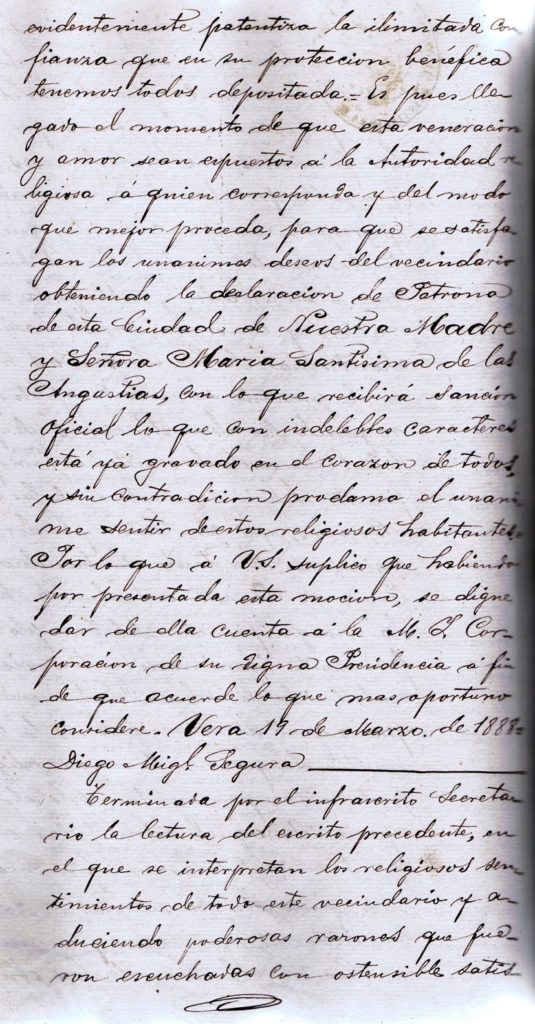 evidentemente patentiza la ilimitada con
fianza que en su proteccion benéfica
tenemos todos depositada.= Es pues lle
gado el momento de que esta veneracion
y amor sean expuestos á la Autoridad re
ligiosa á quien corresponda y del modo
que mejor proceda, para que se satisfa
gan los unanimes deseos del vecindario
obteniendo la declaracion de Patrona
de esta Ciudad de Nuestra Madre
y Señora Maria Santisima de las
Angustias, con lo que recibirá sanción
oficial lo que con indelebles caracteres
está yá gravado en el corazon de todos,
y sin contradicion proclama el unani
me sentir de estos religiosos habitantes.=
Por lo que á V.S. suplico que habiendo
por presentada esta mocion, se digne
dar de ella cuenta á la M. I. Cor-
poración de su digna Presidencia á fin
de que acuerde lo que mas oportuno
considere. Vera 17 de Marzo. de 1888=
Diego Migl. Segura
Terminada por el infrascrito Secreta-
rio la lectura del escrito precedente, en
el que se interpretan los religiosos sen-
timientos de todo este vecindario y a-
duciendo poderosas razones que fue-
ron escuchadas con ostensible satis